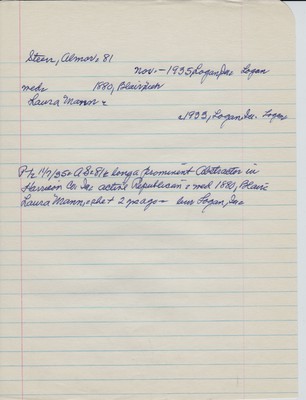 Steen, Almor. 81
Nov. - 1935, Logan, Ia. Logan
med. 1880, Blair, Neb
Laura Mann -
1933, Logan, Ia. Logan
11/7/35 A S 81 long a prominent Abstractor in
Harrison Co. Ia. active Republican. med 1880, Blair
Laura Mann, she + 2 yrs ago - bur Logan, Ia